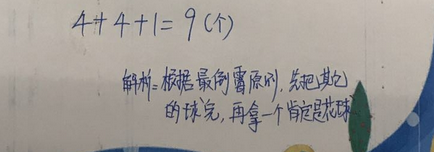 4+4+1=9(个)
解析:根据最倒霉原则,先把其它
的球完,再拿一个肯定是花球